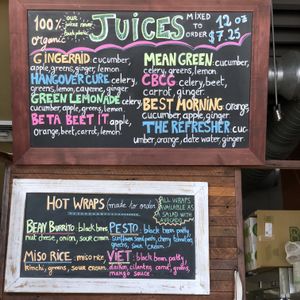 100% organic
JUICES
MIXED to ORDER
12 oz
$7.25
GINGERAID cucumber,
apple, greens, ginger, lemon
HANGOVER CURE celery,
greens, lemon, cayenne, ginger
GREEN LEMONADE celery,
cucumber, apple, greens, lemon
BETA BEET IT apple,
orange, beet, carrot, lemon.
MEAN GREEN: cucumber,
celery, greens, lemon
CBCG celery, beet,
carrot, ginger.
BEST MORNING orange,
cucumber, apple, ginger
THE REFRESHER cuc-
umber, orange, date water, ginger.
HOT WRAPS (made to order)
ALL WRAPS
AVAILABLE AS
SALAD WITH
AVOCADO
BEAN BURRITO: black beans,
nut cheese, onion, sour cream
MISO RICE: miso rice,
kimchi, greens, sour cream.
PESTO: black bean patty,
sunflower seed pesto, cherry tomatoes,
greens, sour cream
VIET: black bean patty,
daikon, cilantro, carrot, greens,
mango sauce